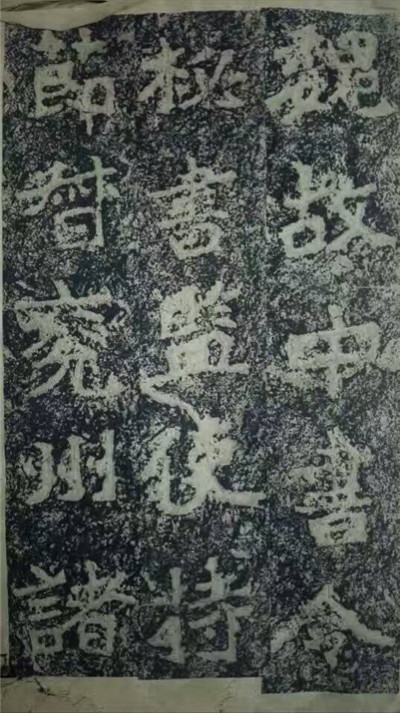 魏故中書令
秘書監使持
節督兗州諸